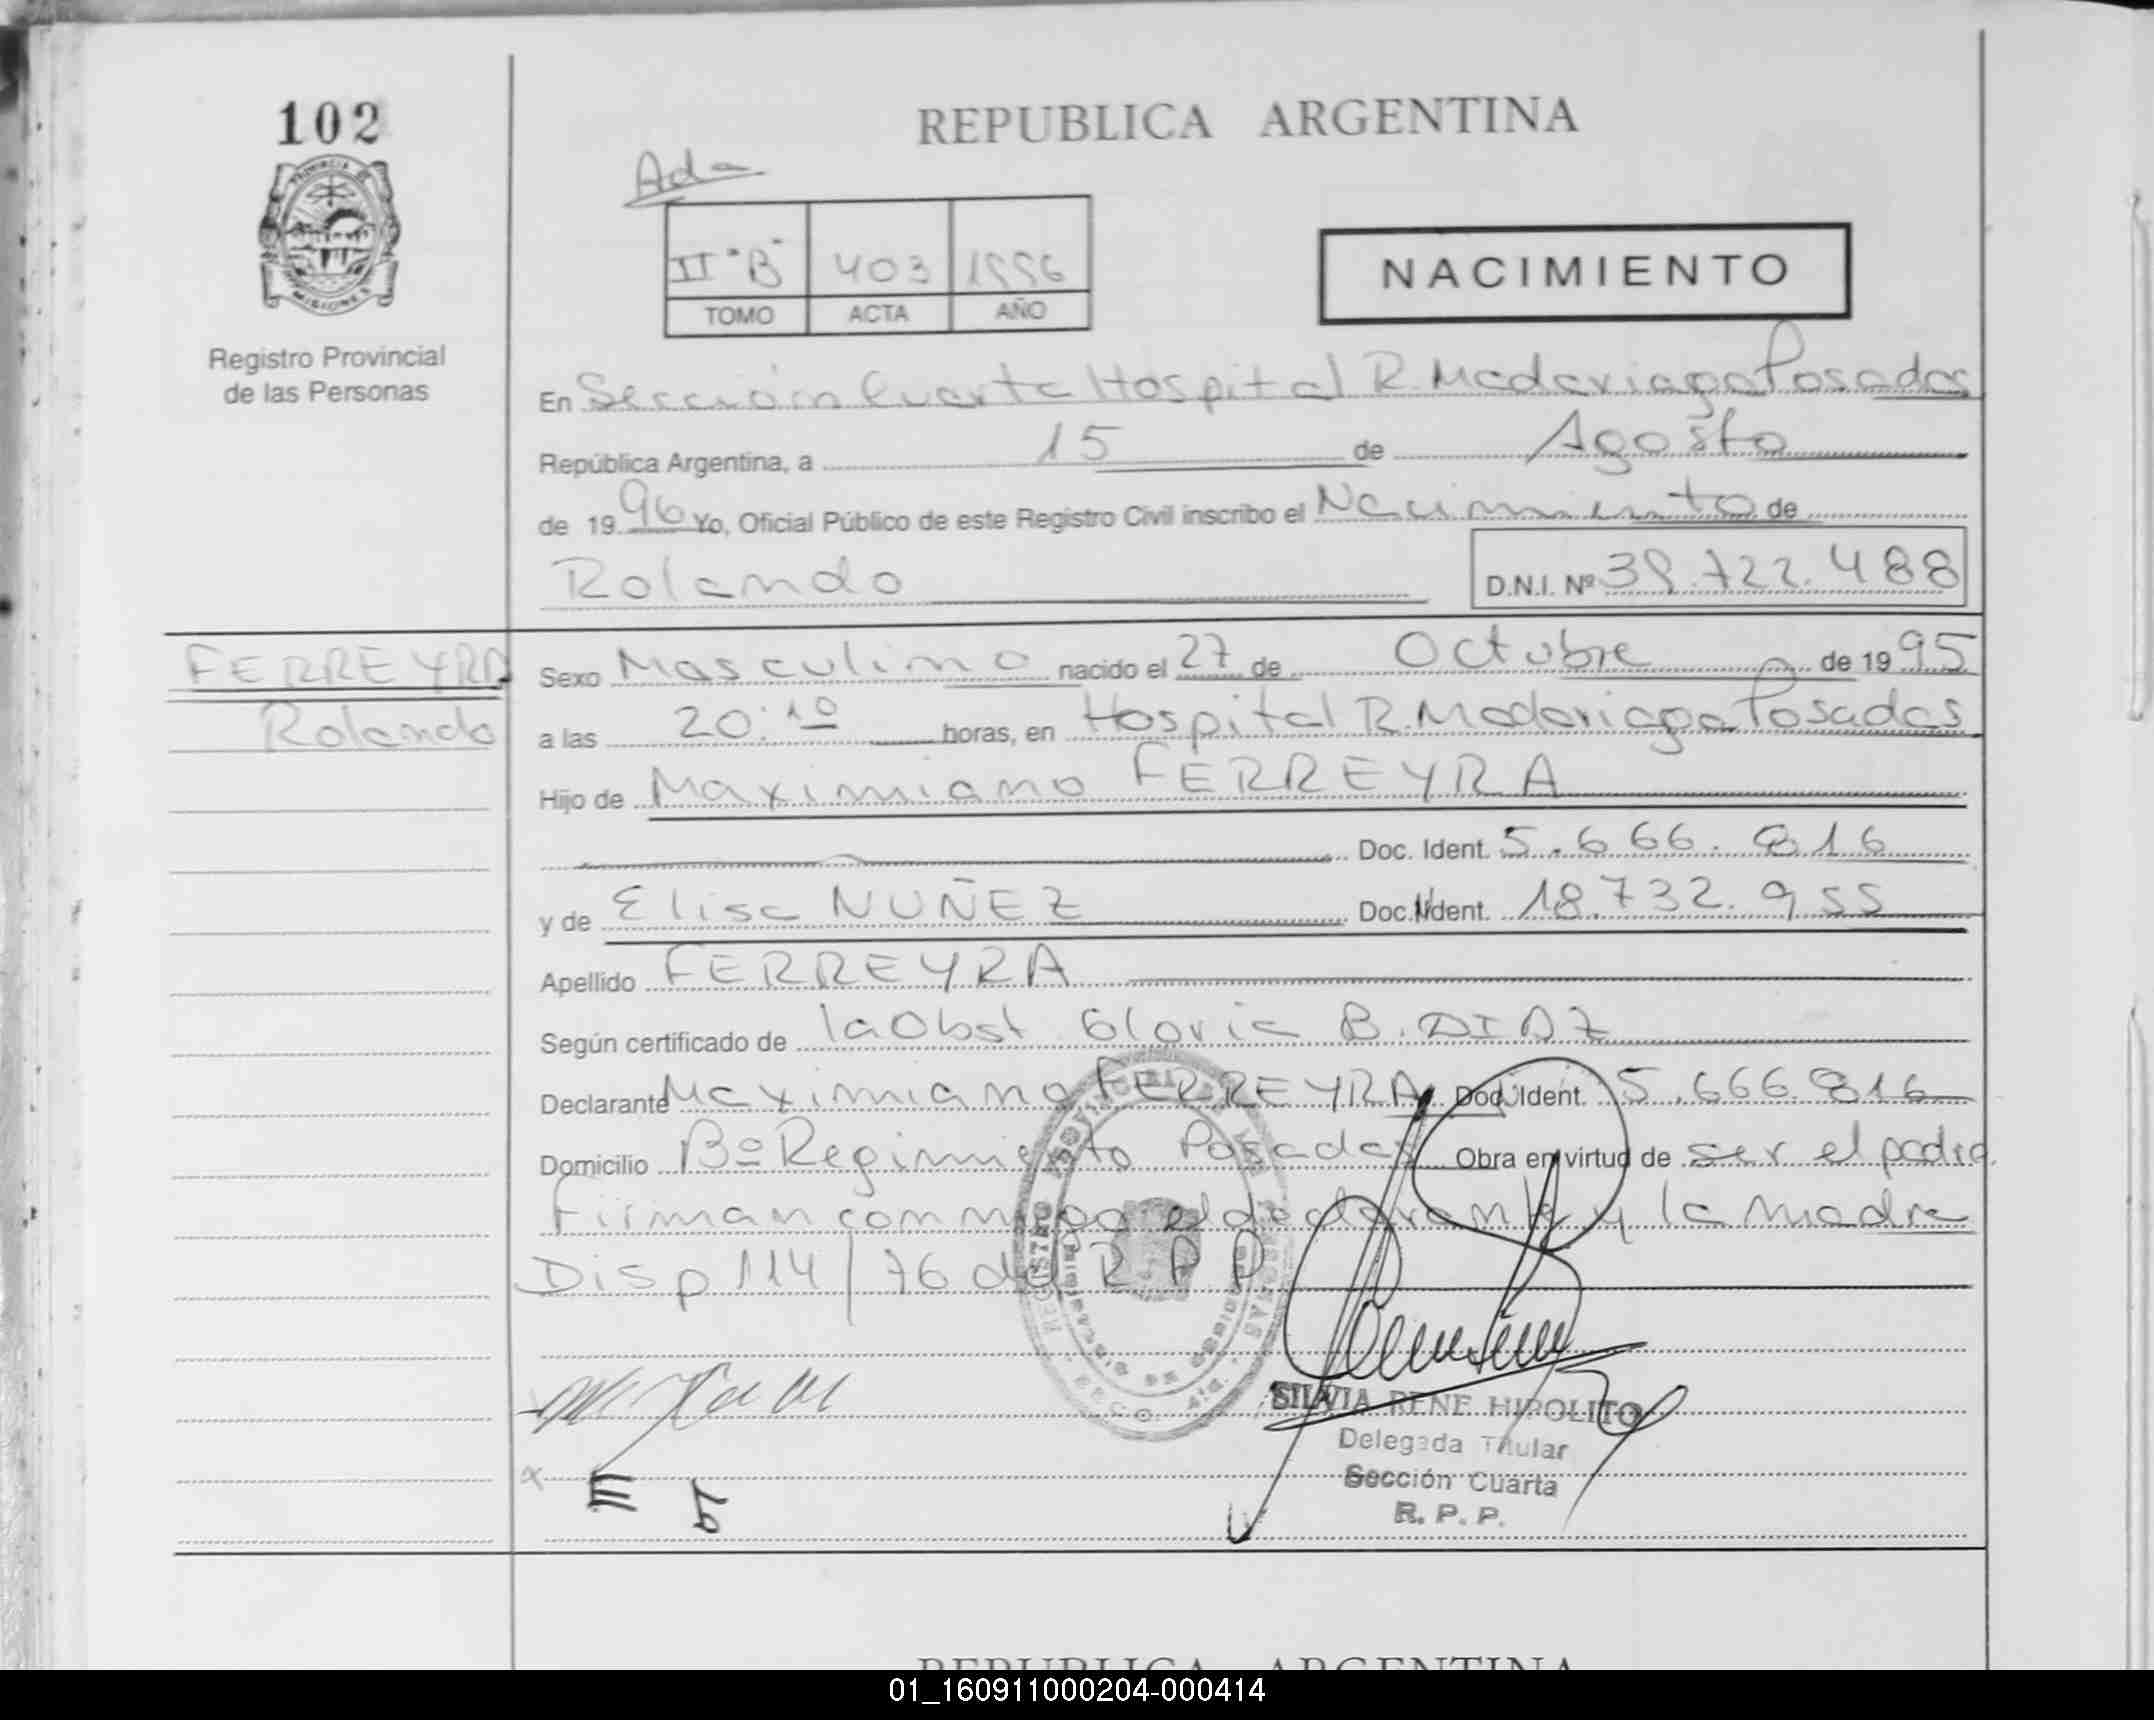 102
REPUBLICA ARGENTINA
Ada
PROVINCIA DE
MISIONES
II "B" 403 1996
TOMO ACTA AÑO
NACIMIENTO
Registro Provincial
de las Personas
En Sección Cuarta Hospital R. Madariaga Posadas
República Argentina, a 15 de Agosto
de 1996 Yo, Oficial Público de este Registro Civil inscribo el Nacimiento de
Rolando D.N.I. Nº 39.722.488
FERREYRA
Rolando
Sexo Masculino nacido el 27 de Octubre de 1995
a las 20:10 horas, en Hospital R. Madariaga Posadas
Hijo de Maximiano FERREYRA
Doc. Ident. 5.666.816
y de Elisa NUÑEZ Doc. Ident. 18.732.955
Apellido FERREYRA
Según certificado de la Obst Gloria B. DIAZ
Declarante Maximiano FERREYRA Doc. Ident. 5.666.816
Domicilio Bº Regimiento Posadas Obra en virtud de ser el padre
Firman conmigo el declarante y la madre
Disp 114/76 del R P P
SILVIA RENE HIPOLITO
Delegada Titular
Sección Cuarta
R. P. P.
REPUBLICA ARGENTINA
01_160911000204-000414